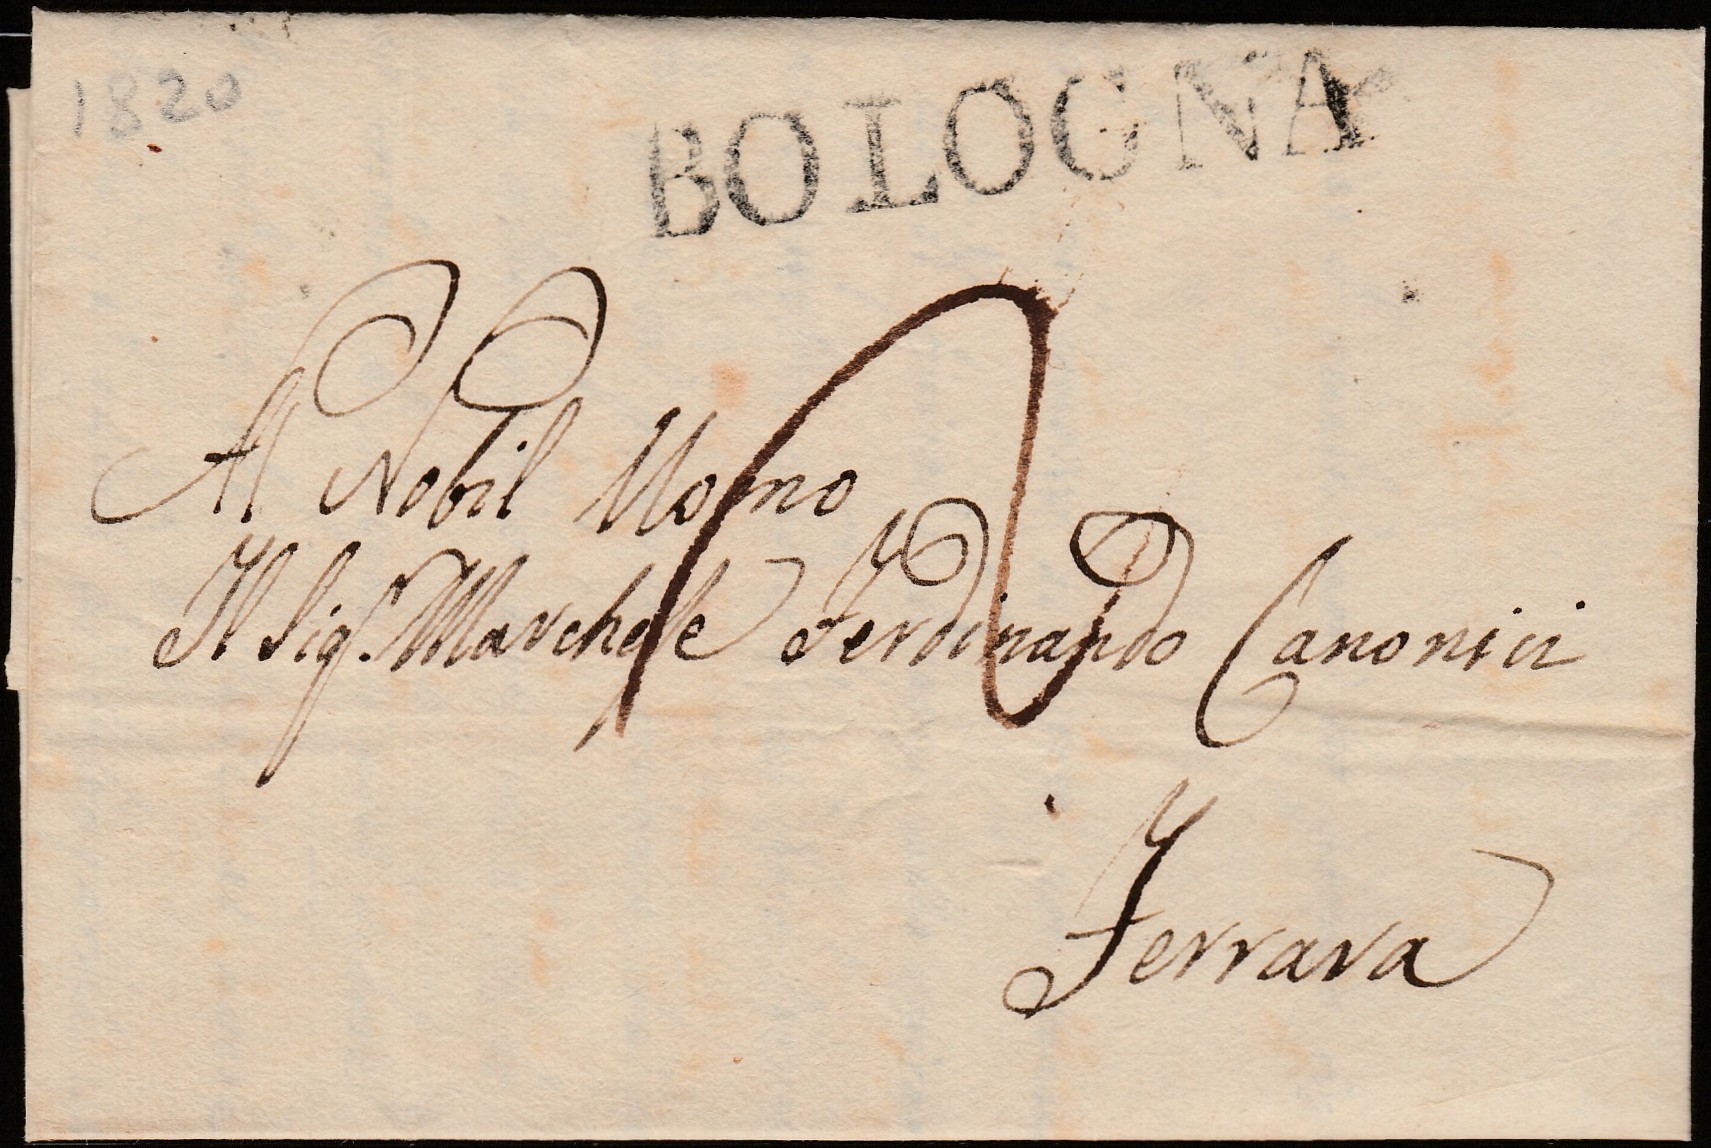 1820
BOLOGNA
Al Nobil Uomo
Il Sigr. Marchese Ferdinando Canonici
Ferrara